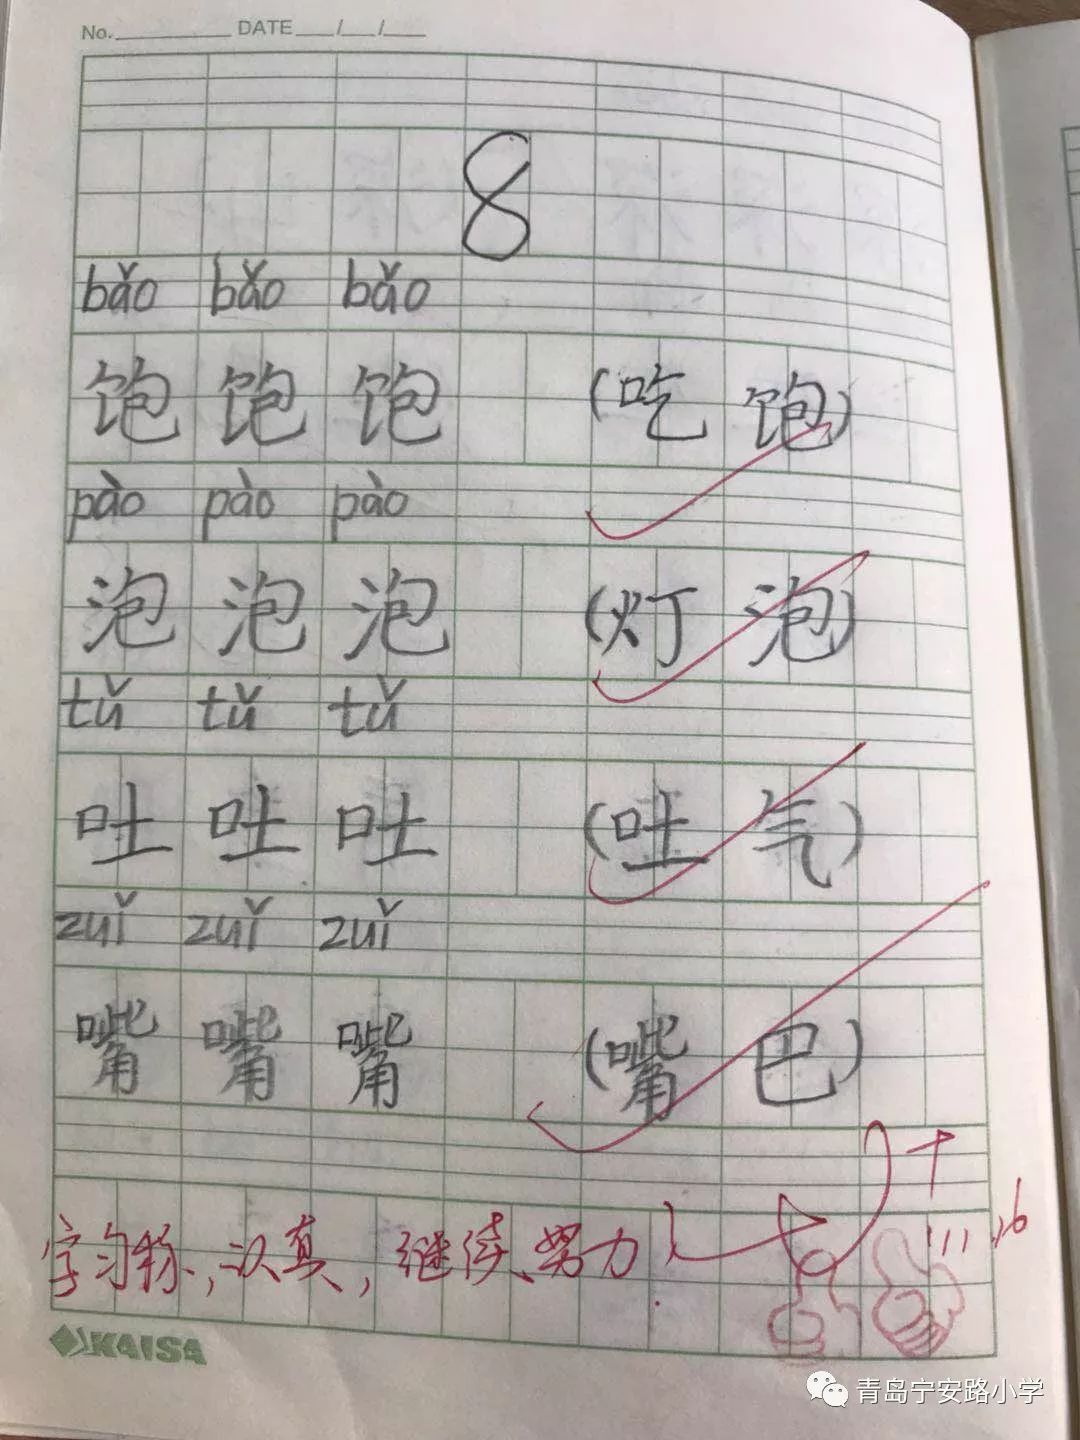 No. DATE / /
8
bǎo bǎo bǎo
饱 饱 饱 (吃 饱)
pào pào pào
泡 泡 泡 (灯 泡)
tǔ tǔ tǔ
吐 吐 吐 (吐 气)
zuǐ zuǐ zuǐ
嘴 嘴 嘴 (嘴 巴)
字匀称,认真,继续努力
KAISA
青岛宁安路小学